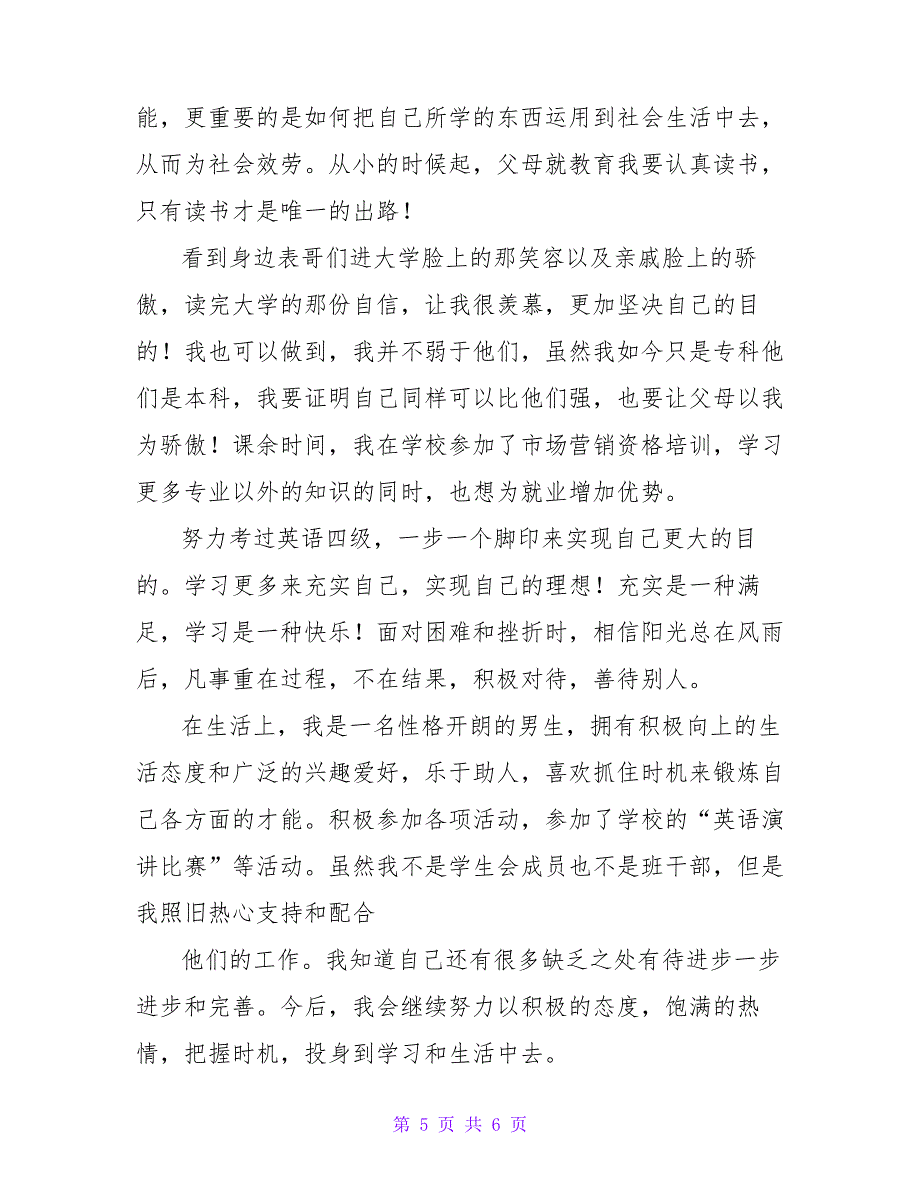 能，更重要的是如何把自己所学的东西运用到社会生活中去，
从而为社会效劳。从小的时候起，父母就教育我要认真读书，
只有读书才是唯一的出路！
看到身边表哥们进大学脸上的那笑容以及亲戚脸上的骄
傲，读完大学的那份自信，让我很羡慕，更加坚决自己的目
的！我也可以做到，我并不弱于他们，虽然我如今只是专科他
们是本科，我要证明自己同样可以比他们强，也要让父母以我
为骄傲！课余时间，我在学校参加了市场营销资格培训，学习
更多专业以外的知识的同时，也想为就业增加优势。
努力考过英语四级，一步一个脚印来实现自己更大的目
的。学习更多来充实自己，实现自己的理想！充实是一种满
足，学习是一种快乐！面对困难和挫折时，相信阳光总在风雨
后，凡事重在过程，不在结果，积极对待，善待别人。
在生活上，我是一名性格开朗的男生，拥有积极向上的生
活态度和广泛的兴趣爱好，乐于助人，喜欢抓住时机来锻炼自
己各方面的才能。积极参加各项活动，参加了学校的“英语演
讲比赛”等活动。虽然我不是学生会成员也不是班干部，但是
我照旧热心支持和配合
他们的工作。我知道自己还有很多缺乏之处有待进步一步
进步和完善。今后，我会继续努力以积极的态度，饱满的热
情，把握时机，投身到学习和生活中去。
第 5 页 共 6 页